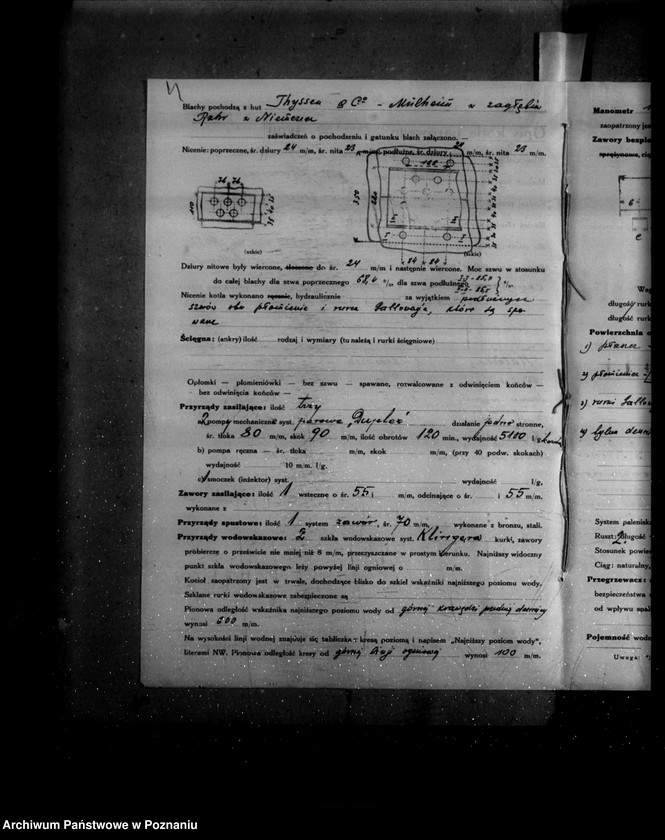 Blachy pochodzą z hut Thyssen & Co - Mülheim w zagłębiu
Ruhr w Niemczech
zaświadczeń o pochodzeniu i gatunku blach załączono. —
Nicenie: poprzeczne, śr. dziury 24 m/m, śr. nita 23 m/m; podłużne, śr. dziury 24 m/m, śr. nita 23 m/m.
(szkic) (szkic)
Dziury nitowe były wiercone, tłoczone do śr. 24 m/m i następnie wiercone. Moc szwu w stosunku
do całej blachy dla szwu poprzecznego 68,4 %, dla szwu podłużnego %.
Nicenie kotła wykonano ręcznie, hydraulicznie za wyjątkiem podłużnych
szwów obu płomienic i rur Gallowaya, które są spa-
wane
Ścięgna: (ankry) ilość rodzaj i wymiary (tu należą i rurki ścięgniowe)
Opłomki — płomieniówki — bez szwu — spawane, rozwalcowane z odwinięciem końców —
— bez odwinięcia końców —
Przyrządy zasilające: ilość trzy
a) 2 pompy mechaniczne syst. parowa „Duplex" działanie jedno stronne,
śr. tłoka 80 m/m, skok 90 m/m, ilość obrotów 120 min., wydajność 5100 l/g.
b) pompa ręczna — śr. tłoka m/m, skok m/m, (przy 40 podw. skokach)
wydajność 10 m/m. l/g.
c) 1 smoczek (inżektor) syst. wydajność l/g,
Zawory zasilające: ilość 1 wsteczne o śr. 55 m/m, odcinające o śr. i 55 m/m.
wykonane z
Przyrządy spustowe: ilość 1 system zawór, śr. 70 m/m, wykonane z bronzu, stali.
Przyrządy wodowskazowe: 2 szkła wodowskazowe syst. Klingera kurki, zawory
probiercze o prześwicie nie mniej niż 8 m/m, przeczyszczane w prostym kierunku. Najniższy widoczny
punkt szkła wodowskazowego leży powyżej linji ogniowej o m/m.
Kocioł zaopatrzony jest w trwałe, dochodzące blisko do szkieł wskaźniki najniższego poziomu wody.
Szklane rurki wodowskazowe zabezpieczone są
Pionowa odległość wskaźnika najniższego poziomu wody od górnej krawędzi przedniej dennicy
wynosi 600 m/m.
Na wysokości linji wodnej znajduje się tabliczka z kresą poziomą i napisem „Najniższy poziom wody",
literami NW. Pionowa odległość kresy od górnej linji ogniowej wynosi 100 m/m.
Manometr
zaopatrzony jest
Zawory bezpie
sprężynowe, cię
długość rurk
długość rurk
Powierzchnia o
1) płaszcz
2) płomienica
3) rurni Gallow
4) tylna denni
System paleniska
Ruszt: długość
Stosunek powie
Ciąg: naturalny,
Przegrzewacz:
bezpieczeństwa
od wpływu spal
Pojemność wodn
Uwaga:
Archiwum Państwowe w Poznaniu